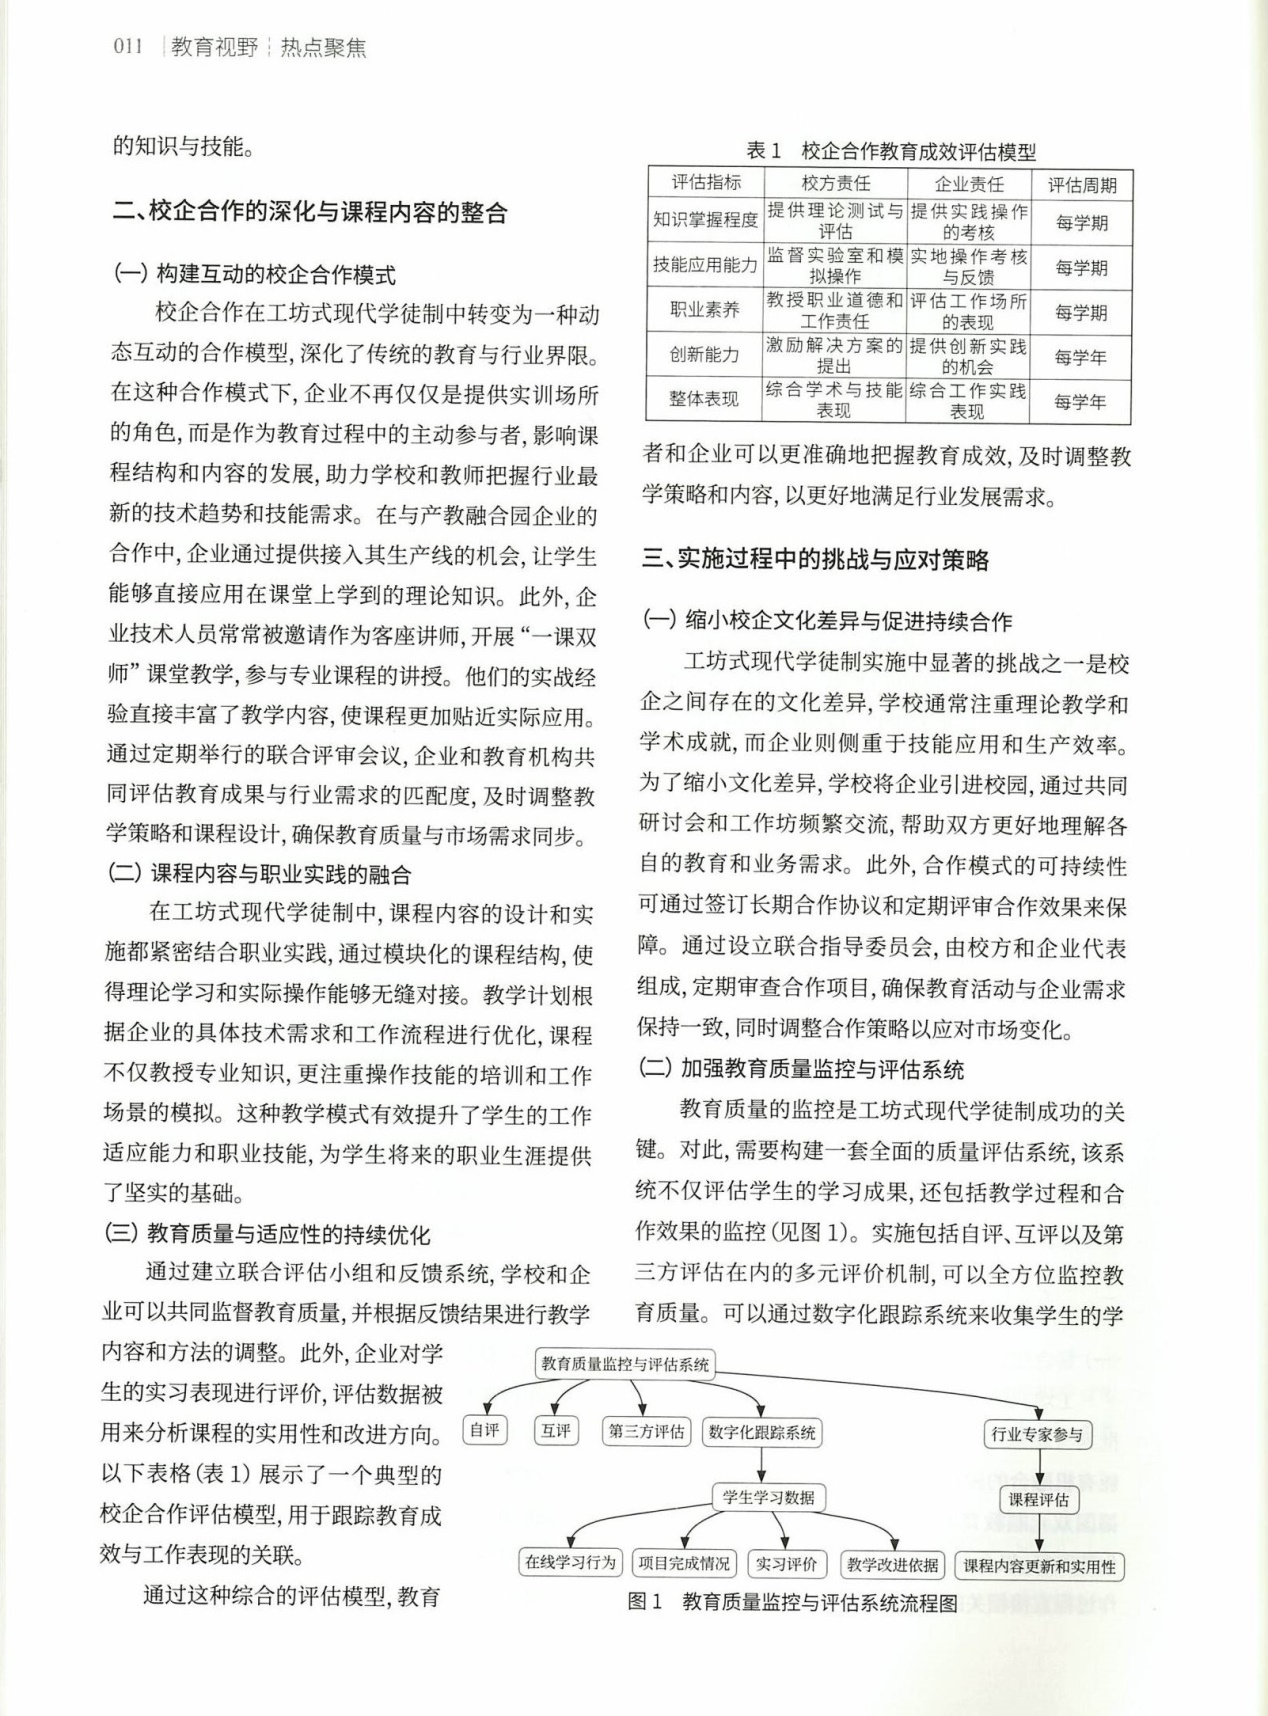 011 教育视野 热点聚焦
的知识与技能。
二、校企合作的深化与课程内容的整合
(一) 构建互动的校企合作模式
校企合作在工坊式现代学徒制中转变为一种动
态互动的合作模型,深化了传统的教育与行业界限。
在这种合作模式下,企业不再仅仅是提供实训场所
的角色,而是作为教育过程中的主动参与者,影响课
程结构和内容的发展,助力学校和教师把握行业最
新的技术趋势和技能需求。在与产教融合园企业的
合作中,企业通过提供接入其生产线的机会,让学生
能够直接应用在课堂上学到的理论知识。此外,企
业技术人员常常被邀请作为客座讲师,开展“一课双
师”课堂教学,参与专业课程的讲授。他们的实战经
验直接丰富了教学内容,使课程更加贴近实际应用。
通过定期举行的联合评审会议,企业和教育机构共
同评估教育成果与行业需求的匹配度,及时调整教
学策略和课程设计,确保教育质量与市场需求同步。
(二) 课程内容与职业实践的融合
在工坊式现代学徒制中,课程内容的设计和实
施都紧密结合职业实践,通过模块化的课程结构,使
得理论学习和实际操作能够无缝对接。教学计划根
据企业的具体技术需求和工作流程进行优化,课程
不仅教授专业知识,更注重操作技能的培训和工作
场景的模拟。这种教学模式有效提升了学生的工作
适应能力和职业技能,为学生将来的职业生涯提供
了坚实的基础。
(三) 教育质量与适应性的持续优化
通过建立联合评估小组和反馈系统,学校和企
业可以共同监督教育质量,并根据反馈结果进行教学
内容和方法的调整。此外,企业对学
生的实习表现进行评价,评估数据被
用来分析课程的实用性和改进方向。
以下表格(表1)展示了一个典型的
校企合作评估模型,用于跟踪教育成
效与工作表现的关联。
通过这种综合的评估模型,教育
表1 校企合作教育成效评估模型
评估指标 校方责任 企业责任 评估周期
知识掌握程度 提供理论测试与评估 提供实践操作的考核 每学期
技能应用能力 监督实验室和模拟操作 实地操作考核与反馈 每学期
职业素养 教授职业道德和工作责任 评估工作场所的表现 每学期
创新能力 激励解决方案的提出 提供创新实践的机会 每学年
整体表现 综合学术与技能表现 综合工作实践表现 每学年
者和企业可以更准确地把握教育成效,及时调整教
学策略和内容,以更好地满足行业发展需求。
三、实施过程中的挑战与应对策略
(一) 缩小校企文化差异与促进持续合作
工坊式现代学徒制实施中显著的挑战之一是校
企之间存在的文化差异,学校通常注重理论教学和
学术成就,而企业则侧重于技能应用和生产效率。
为了缩小文化差异,学校将企业引进校园,通过共同
研讨会和工作坊频繁交流,帮助双方更好地理解各
自的教育和业务需求。此外,合作模式的可持续性
可通过签订长期合作协议和定期评审合作效果来保
障。通过设立联合指导委员会,由校方和企业代表
组成,定期审查合作项目,确保教育活动与企业需求
保持一致,同时调整合作策略以应对市场变化。
(二) 加强教育质量监控与评估系统
教育质量的监控是工坊式现代学徒制成功的关
键。对此,需要构建一套全面的质量评估系统,该系
统不仅评估学生的学习成果,还包括教学过程和合
作效果的监控(见图1)。实施包括自评、互评以及第
三方评估在内的多元评价机制,可以全方位监控教
育质量。可以通过数字化跟踪系统来收集学生的学
教育质量监控与评估系统
自评 互评 第三方评估 数字化跟踪系统 行业专家参与
学生学习数据 课程评估
在线学习行为 项目完成情况 实习评价 教学改进依据 课程内容更新和实用性
图1 教育质量监控与评估系统流程图